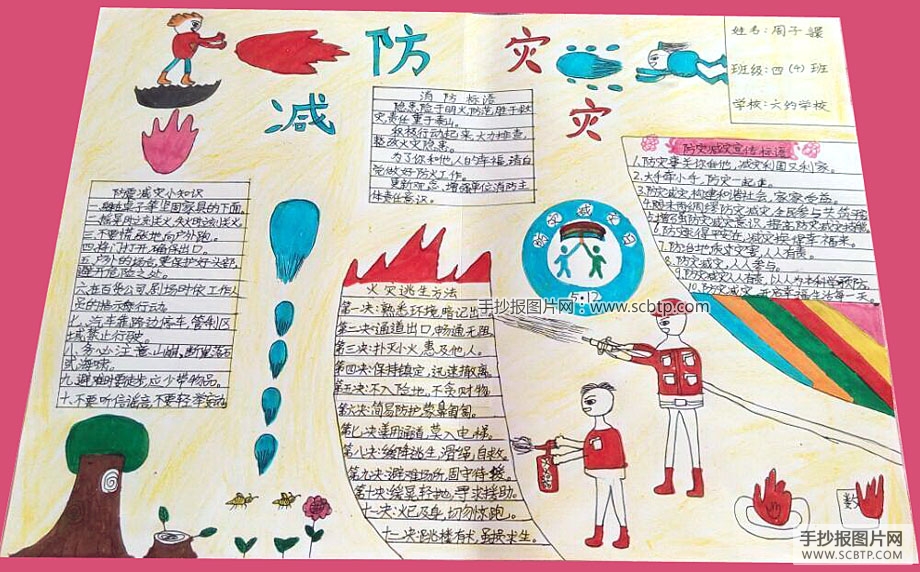 防
灾
减
灾
姓名:周子
班级:四(4)班
学校:六约学校
消防标语
隐患险于明火,防范胜于救
灾,责任重于泰山。
积极行动起来,大力排查,
整改火灾隐患。
为了你和他人的幸福,请自
觉做好防火工作。
更新观念,增强单位消防主
体责任意识。
防灾减灾宣传标语
1.防灾事关你和他,减灾利国又利家。
2.大手牵小手,防灾一起走。
3.防灾减灾构建和谐社会,家家受益。
5.增强防灾减灾意识,提高防灾减灾技能。
6.防灾集得平安生,减灾换得幸福来。
7.防治地质灾害,人人有责。
8.防灾减灾,人人参与。
9.防灾减灾人人有责,以人为本科学预防。
10.防灾减灾
防震减灾小知识
一.躲在桌子等坚固家具的下面。
三.不要慌张地向户外跑。
四.将门打开,确保出口。
五.户外的场合,要保护好头部,
避开危险之处。
六.在百货公司,剧场时依工作人
员的指示行动。
七.汽车靠路边停车,管制区
域禁止行驶。
八.务必注意山崩、断崖落石
或海啸。
九.避难时要徒步,应少带物品。
十.不要听信谣言,不要轻举妄动。
火灾逃生方法
第一决:熟悉环境,暗记出口
第二决:通道出口,畅通无阻
第三决:扑灭小火,惠及他人。
第四决:保持镇定,迅速撤离。
第五决:不入险地,不贪财物。
第六决:简易防护,蒙鼻匍匐。
第七决:善用通道,莫入电梯。
第八决:缓降逃生,滑绳自救。
第九决:避难场所,固守待援。
第十决:缓晃轻抛,寻求援助。
十一决:火已及身,切勿惊跑。
十二决:跳楼有术,虽损求生。
5·12
手抄报图片网:www.scbtp.com
手抄报图片网
WWW.SCBTP.COM